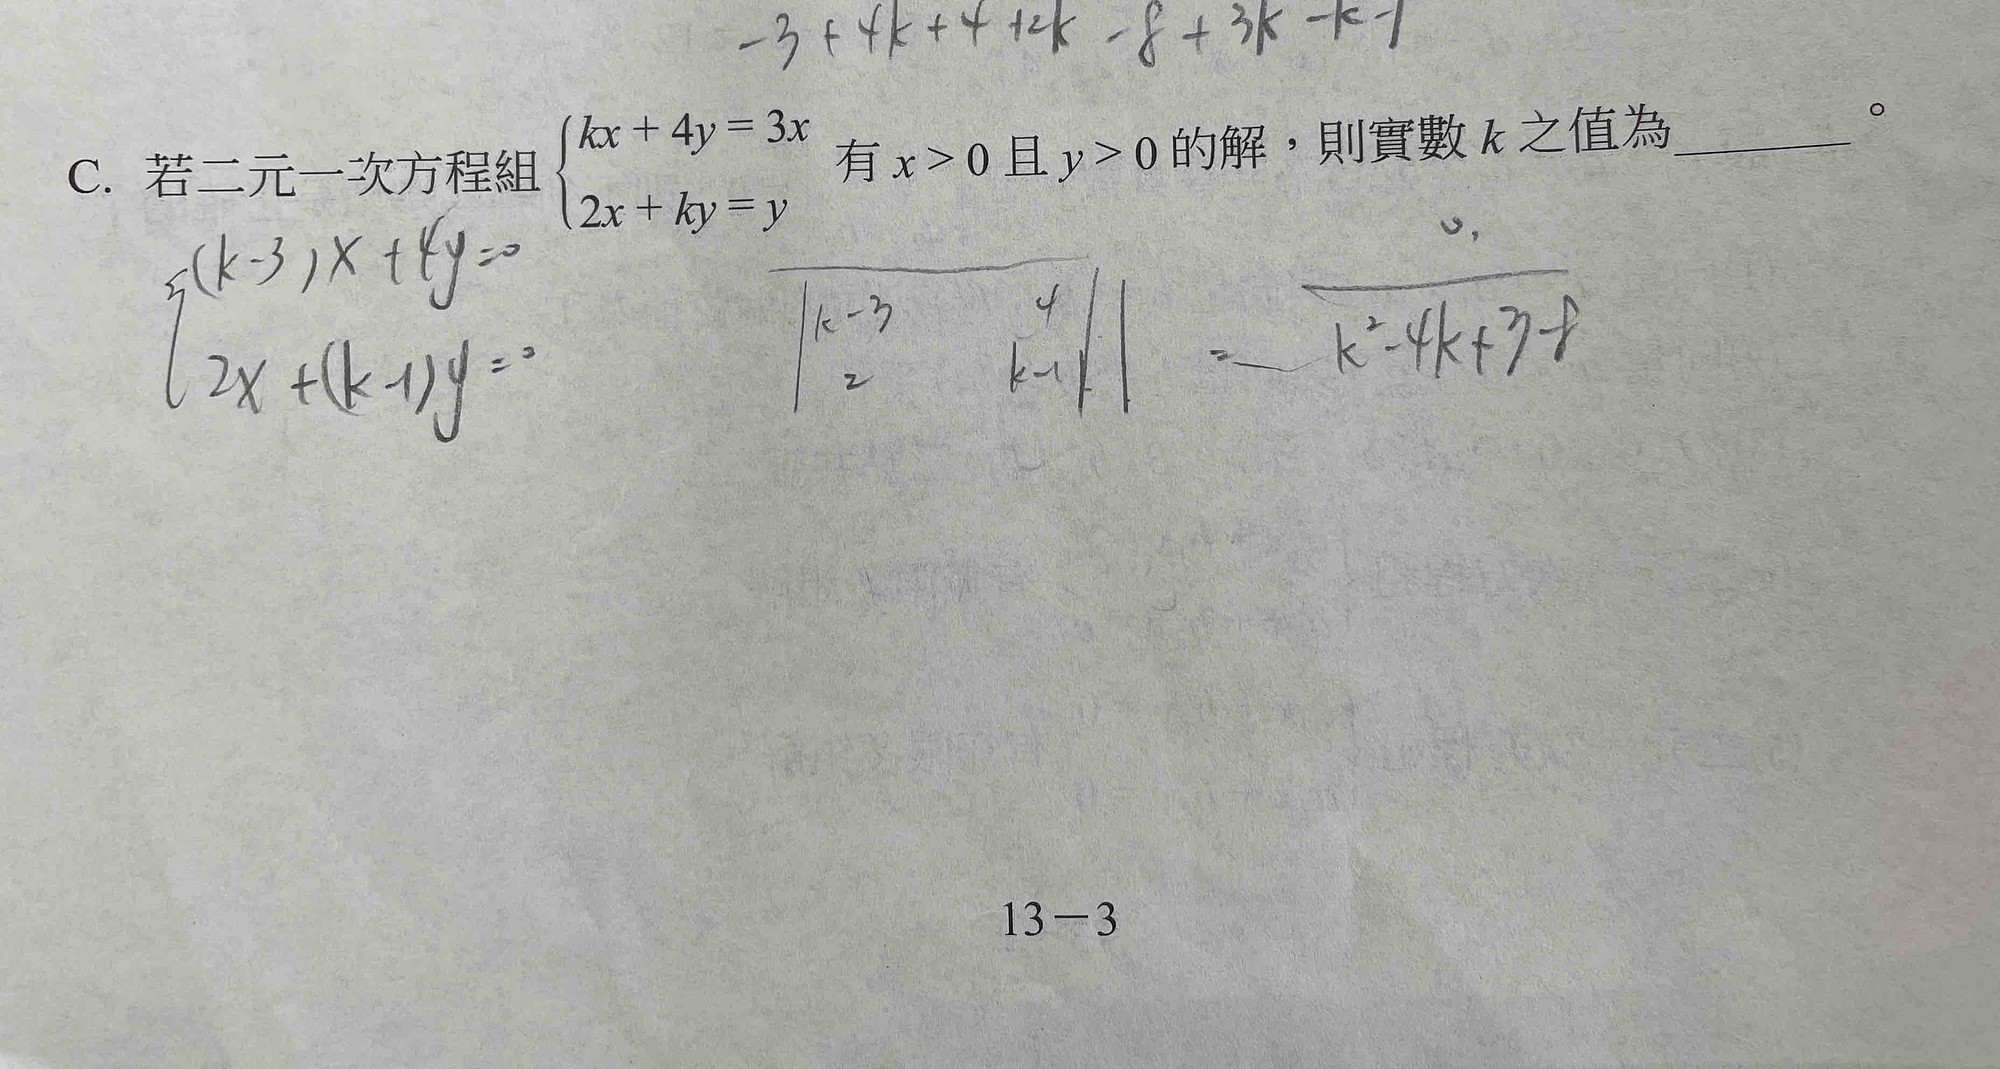 -3+4k+4+2k-8+3k-k-1
C. 若二元一次方程組 { kx + 4y = 3x
2x + ky = y 有 x > 0 且 y > 0 的解，則實數 k 之值為________。
(k-3)x+4y=0
2x+(k-1)y=0
| k-3 4 |
| 2 k-1 |
= k²-4k+3-8
0,
13－3